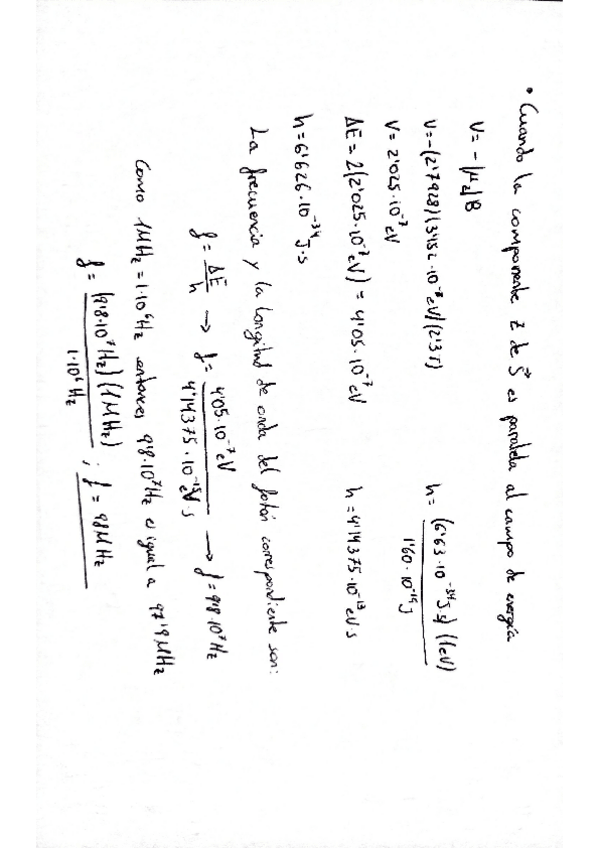 • Cuando la componente z de S⃗ es paralela al campo de energía
V = -|μz|B
V = -(2'7928)(3'152·10⁻⁸ eV/T)(2'3 T)
V = 2'025·10⁻⁷ eV
ΔE = 2(2'025·10⁻⁷ eV) = 4'05·10⁻⁷ eV
h = 6'626·10⁻³⁴ J·s
h = (6'63·10⁻³⁴ J·s)(1eV) / 1'60·10⁻¹⁹ J
h = 4'14375·10⁻¹⁵ eV·s
La frecuencia y la longitud de onda del fotón correspondiente son:
f = ΔE / h → f = 4'05·10⁻⁷ eV / 4'14375·10⁻¹⁵ eV·s → f = 9'8·10⁷ Hz
Como 1MHz = 1·10⁶ Hz entonces 9'8·10⁷ Hz es igual a 97'9 MHz
f = (9'8·10⁷ Hz)(1MHz) / 1·10⁶ Hz ; f = 98 MHz